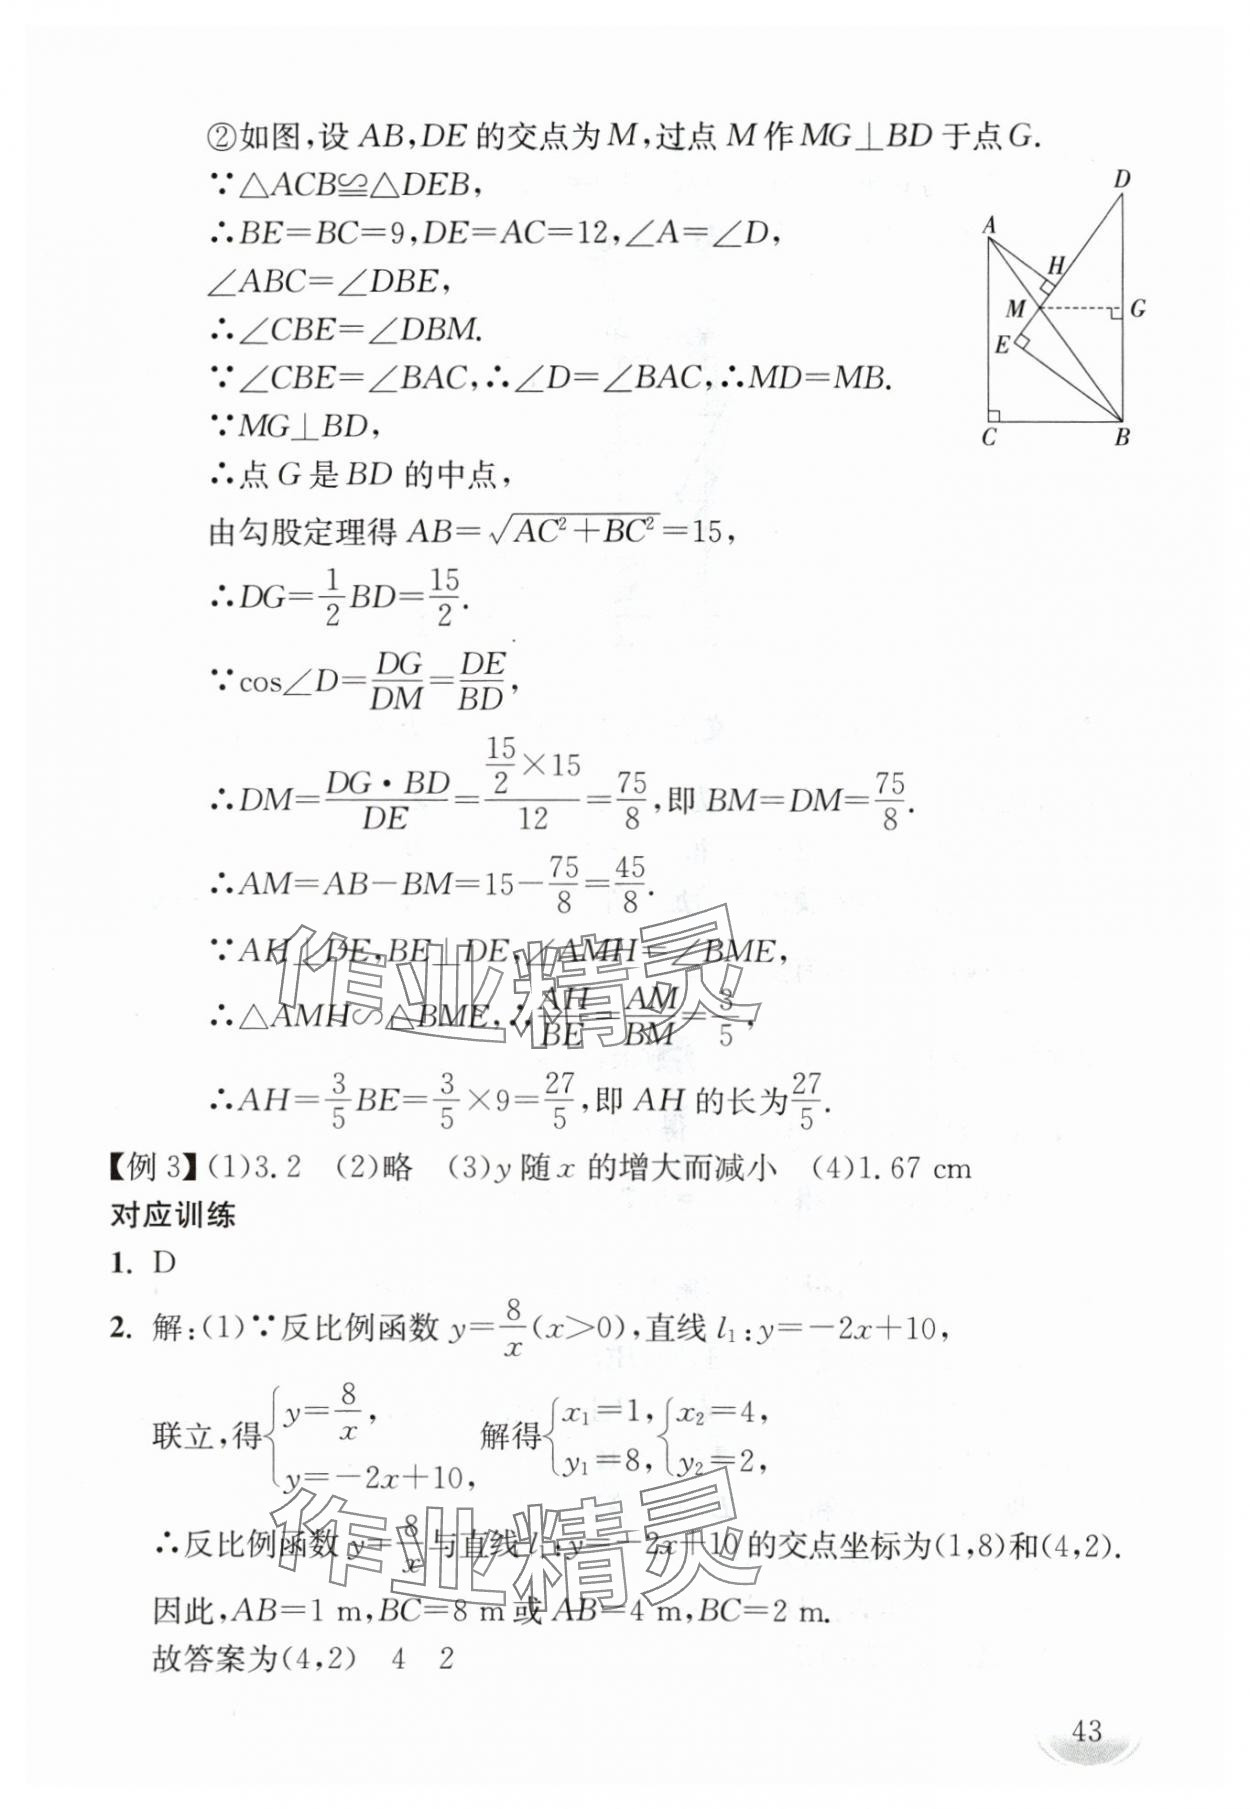 ②如图,设AB,DE的交点为M,过点M作MG⊥BD于点G.
∵△ACB≌△DEB,
∴BE=BC=9,DE=AC=12,∠A=∠D,
∠ABC=∠DBE,
∴∠CBE=∠DBM.
∵∠CBE=∠BAC,∴∠D=∠BAC,∴MD=MB.
∵MG⊥BD,
∴点G是BD的中点,
由勾股定理得AB=√(AC²+BC²)=15,
∴DG=1/2 BD=15/2.
∵cos∠D=DG/DM=DE/BD,
∴DM=(DG·BD)/DE=(15/2×15)/12=75/8,即BM=DM=75/8.
∴AM=AB-BM=15-75/8=45/8.
∵AH⊥DE,BE⊥DE,∠AMH=∠BME,
∴△AMH∽△BME,∴AH/BE=AM/BM=3/5,
∴AH=3/5 BE=3/5×9=27/5,即AH的长为27/5.
A
D
H
M
G
E
C
B
【例3】(1)3.2 (2)略 (3)y随x的增大而减小 (4)1.67 cm
对应训练
1. D
2. 解:(1)∵反比例函数y=8/x(x>0),直线l₁:y=-2x+10,
联立,得{y=8/x, y=-2x+10, 解得{x₁=1, y₁=8, {x₂=4, y₂=2,
∴反比例函数y=8/x与直线l₁:y=-2x+10的交点坐标为(1,8)和(4,2).
因此,AB=1 m,BC=8 m或AB=4 m,BC=2 m.
故答案为(4,2) 4 2
作业精灵
作业精灵
43